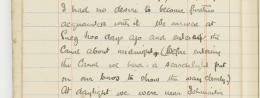 I had no desire to become further
acquainted with it. We arrived at
Suez two days ago and entered the
Canal about midnight. (Before entering
the Canal we have a searchlight put
on our bows to show the way clearly)
At daylight we were near Ishmailia